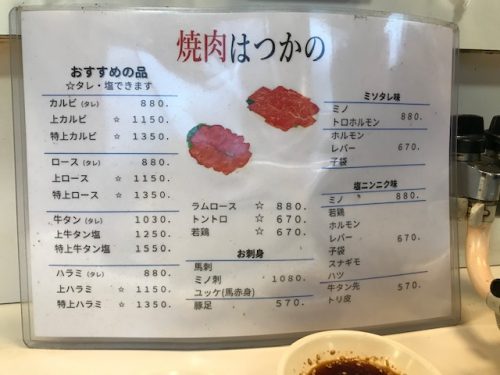 焼肉はつかの
おすすめの品
☆タレ・塩できます
カルビ (タレ) 880.
上カルビ ☆ 1150.
特上カルビ ☆ 1350.
ロース (タレ) 880.
上ロース ☆ 1150.
特上ロース ☆ 1350.
牛タン (タレ) 1030.
上牛タン塩 1250.
特上牛タン塩 1550.
ハラミ (タレ) 880.
上ハラミ ☆ 1150.
特上ハラミ ☆ 1350.
ラムロース ☆ 880.
トントロ ☆ 670.
若鶏 ☆ 670.
お刺身
馬刺
ミノ刺 1080.
ユッケ(馬赤身)
豚足 570.
ミソタレ味
ミノ
トロホルモン 880.
ホルモン
レバー 670.
子袋
塩ニンニク味
ミノ 880.
若鶏
ホルモン
レバー 670.
子袋
スナギモ
ハツ
牛タン先 570.
トリ皮